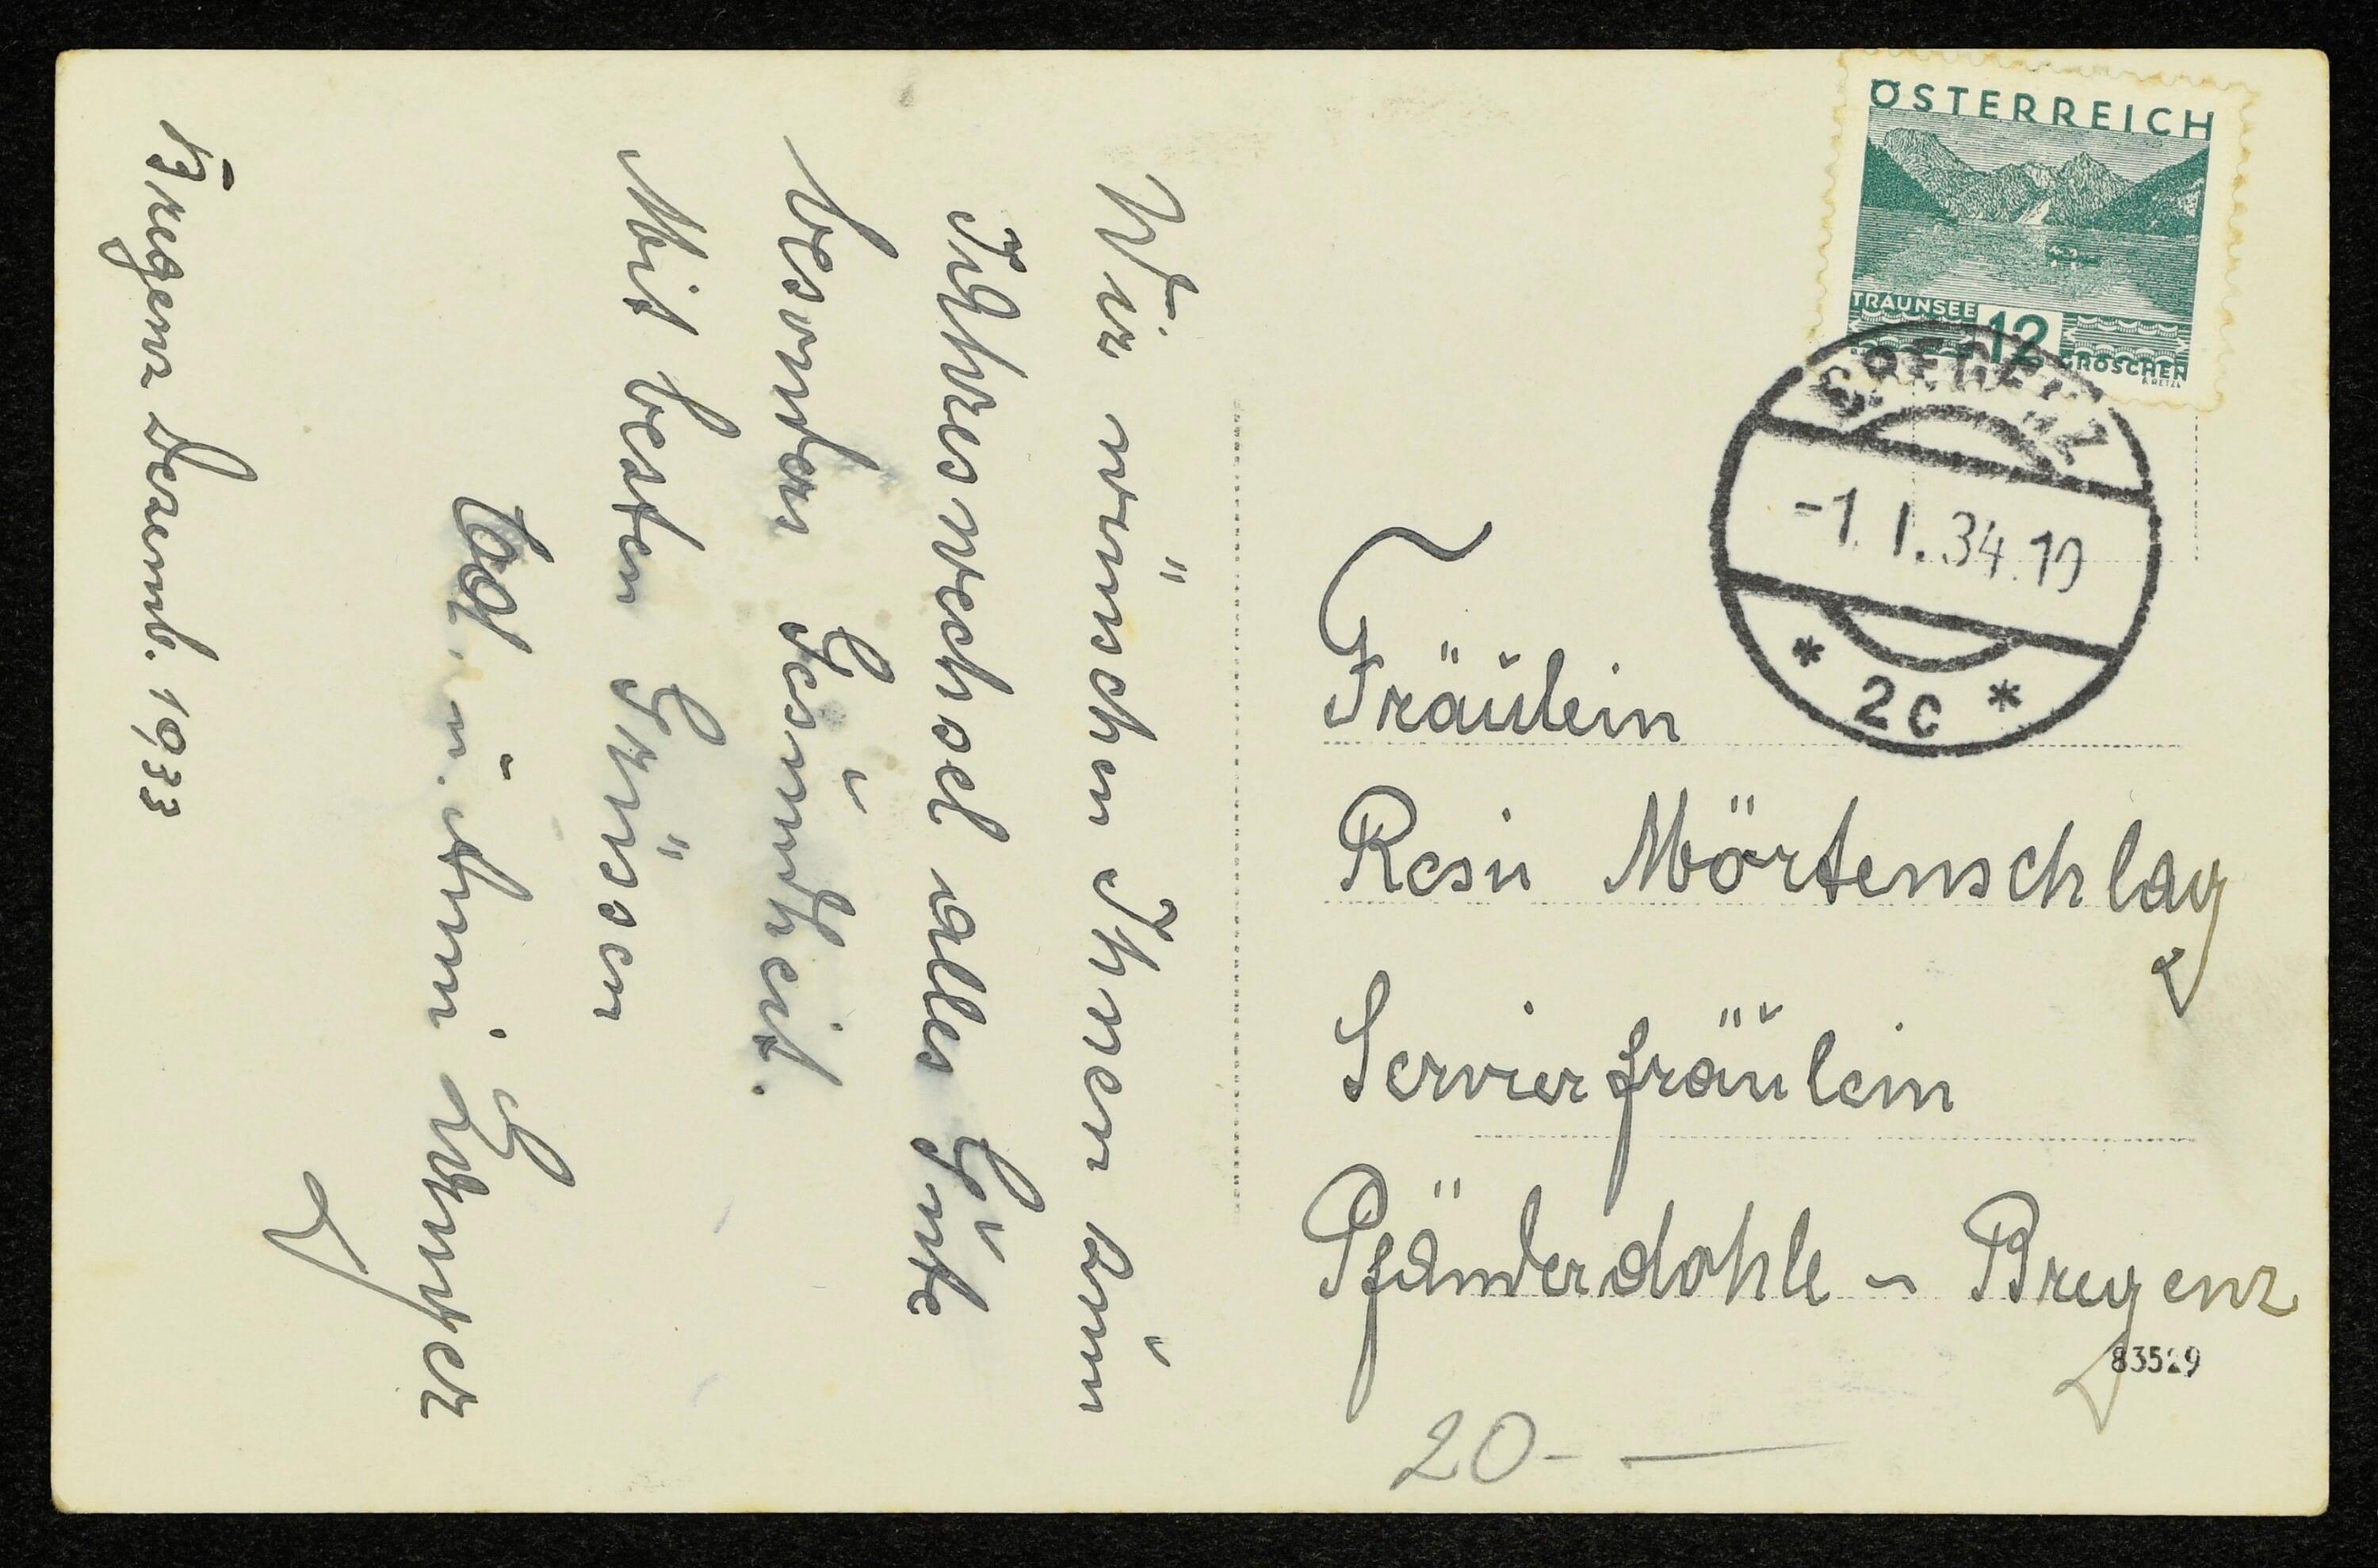 Wir wünschen Ihnen zum
Jahreswechsel alles Gute
besonders Gesundheit.
Mit besten Grüssen
Bregenz Dezemb. 1933
ÖSTERREICH
TRAUNSEE
12
GROSCHEN
BREGENZ
-1. I. 34. 10
* 2c *
Fräulein
Resi Mörtenschlag
Servierfräulein
Pfänderdohle - Bregenz
83529
20-